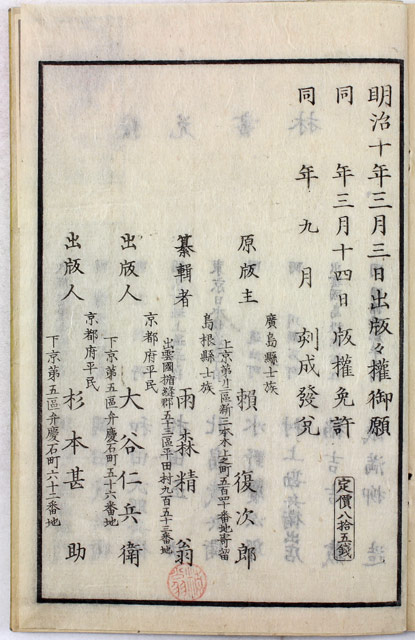 明治十年三月三日出版々權御願
同年三月十四日版權免許
同年九月刻成發兌
定價八拾五錢
廣島縣士族
原版主 賴復次郎
上京第廿二區新三本木上之町五百四十番地寄留
島根縣士族
纂輯者 雨森精翁
出雲國楯縫郡五十三區平田村九百五十三番地
京都府平民
出版人 大谷仁兵衛
下京第五區弁慶石町五十六番地
京都府平民
出版人 杉本甚助
下京第五區弁慶石町六十二番地